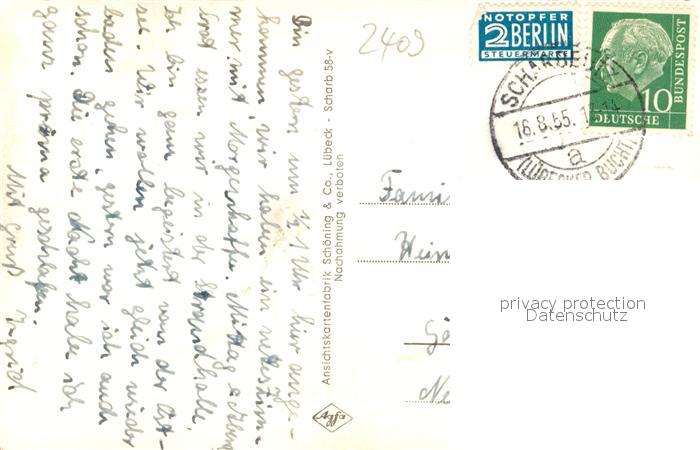 Bin gestern um ½ 1 Uhr hier ange-
kommen, wir haben ein nettes Zim-
mer mit Morgenkaffe. Mittag u. Abend
brot essen wir in der Strandhalle.
Ich bin ganz begeistert von der Ost-
see. Wir wollen jetzt gleich wieder
baden gehen, gestern war ich auch
schon. Die erste Nacht habe ich
ganz prima geschlafen.
Mit Gruß
Ingrid
Ansichtskartenfabrik Schöning & Co., Lübeck - Scharb 58-v
Nachahmung verboten
Agfa
2409
NOTOPFER
2 BERLIN
STEUERMARKE
10
DEUTSCHE
BUNDESPOST
SCHARBEUTZ
16.8.55.
a
(LÜBECKER BUCHT)
Fami
Hein
Gö
Ne
privacy protection
Datenschutz